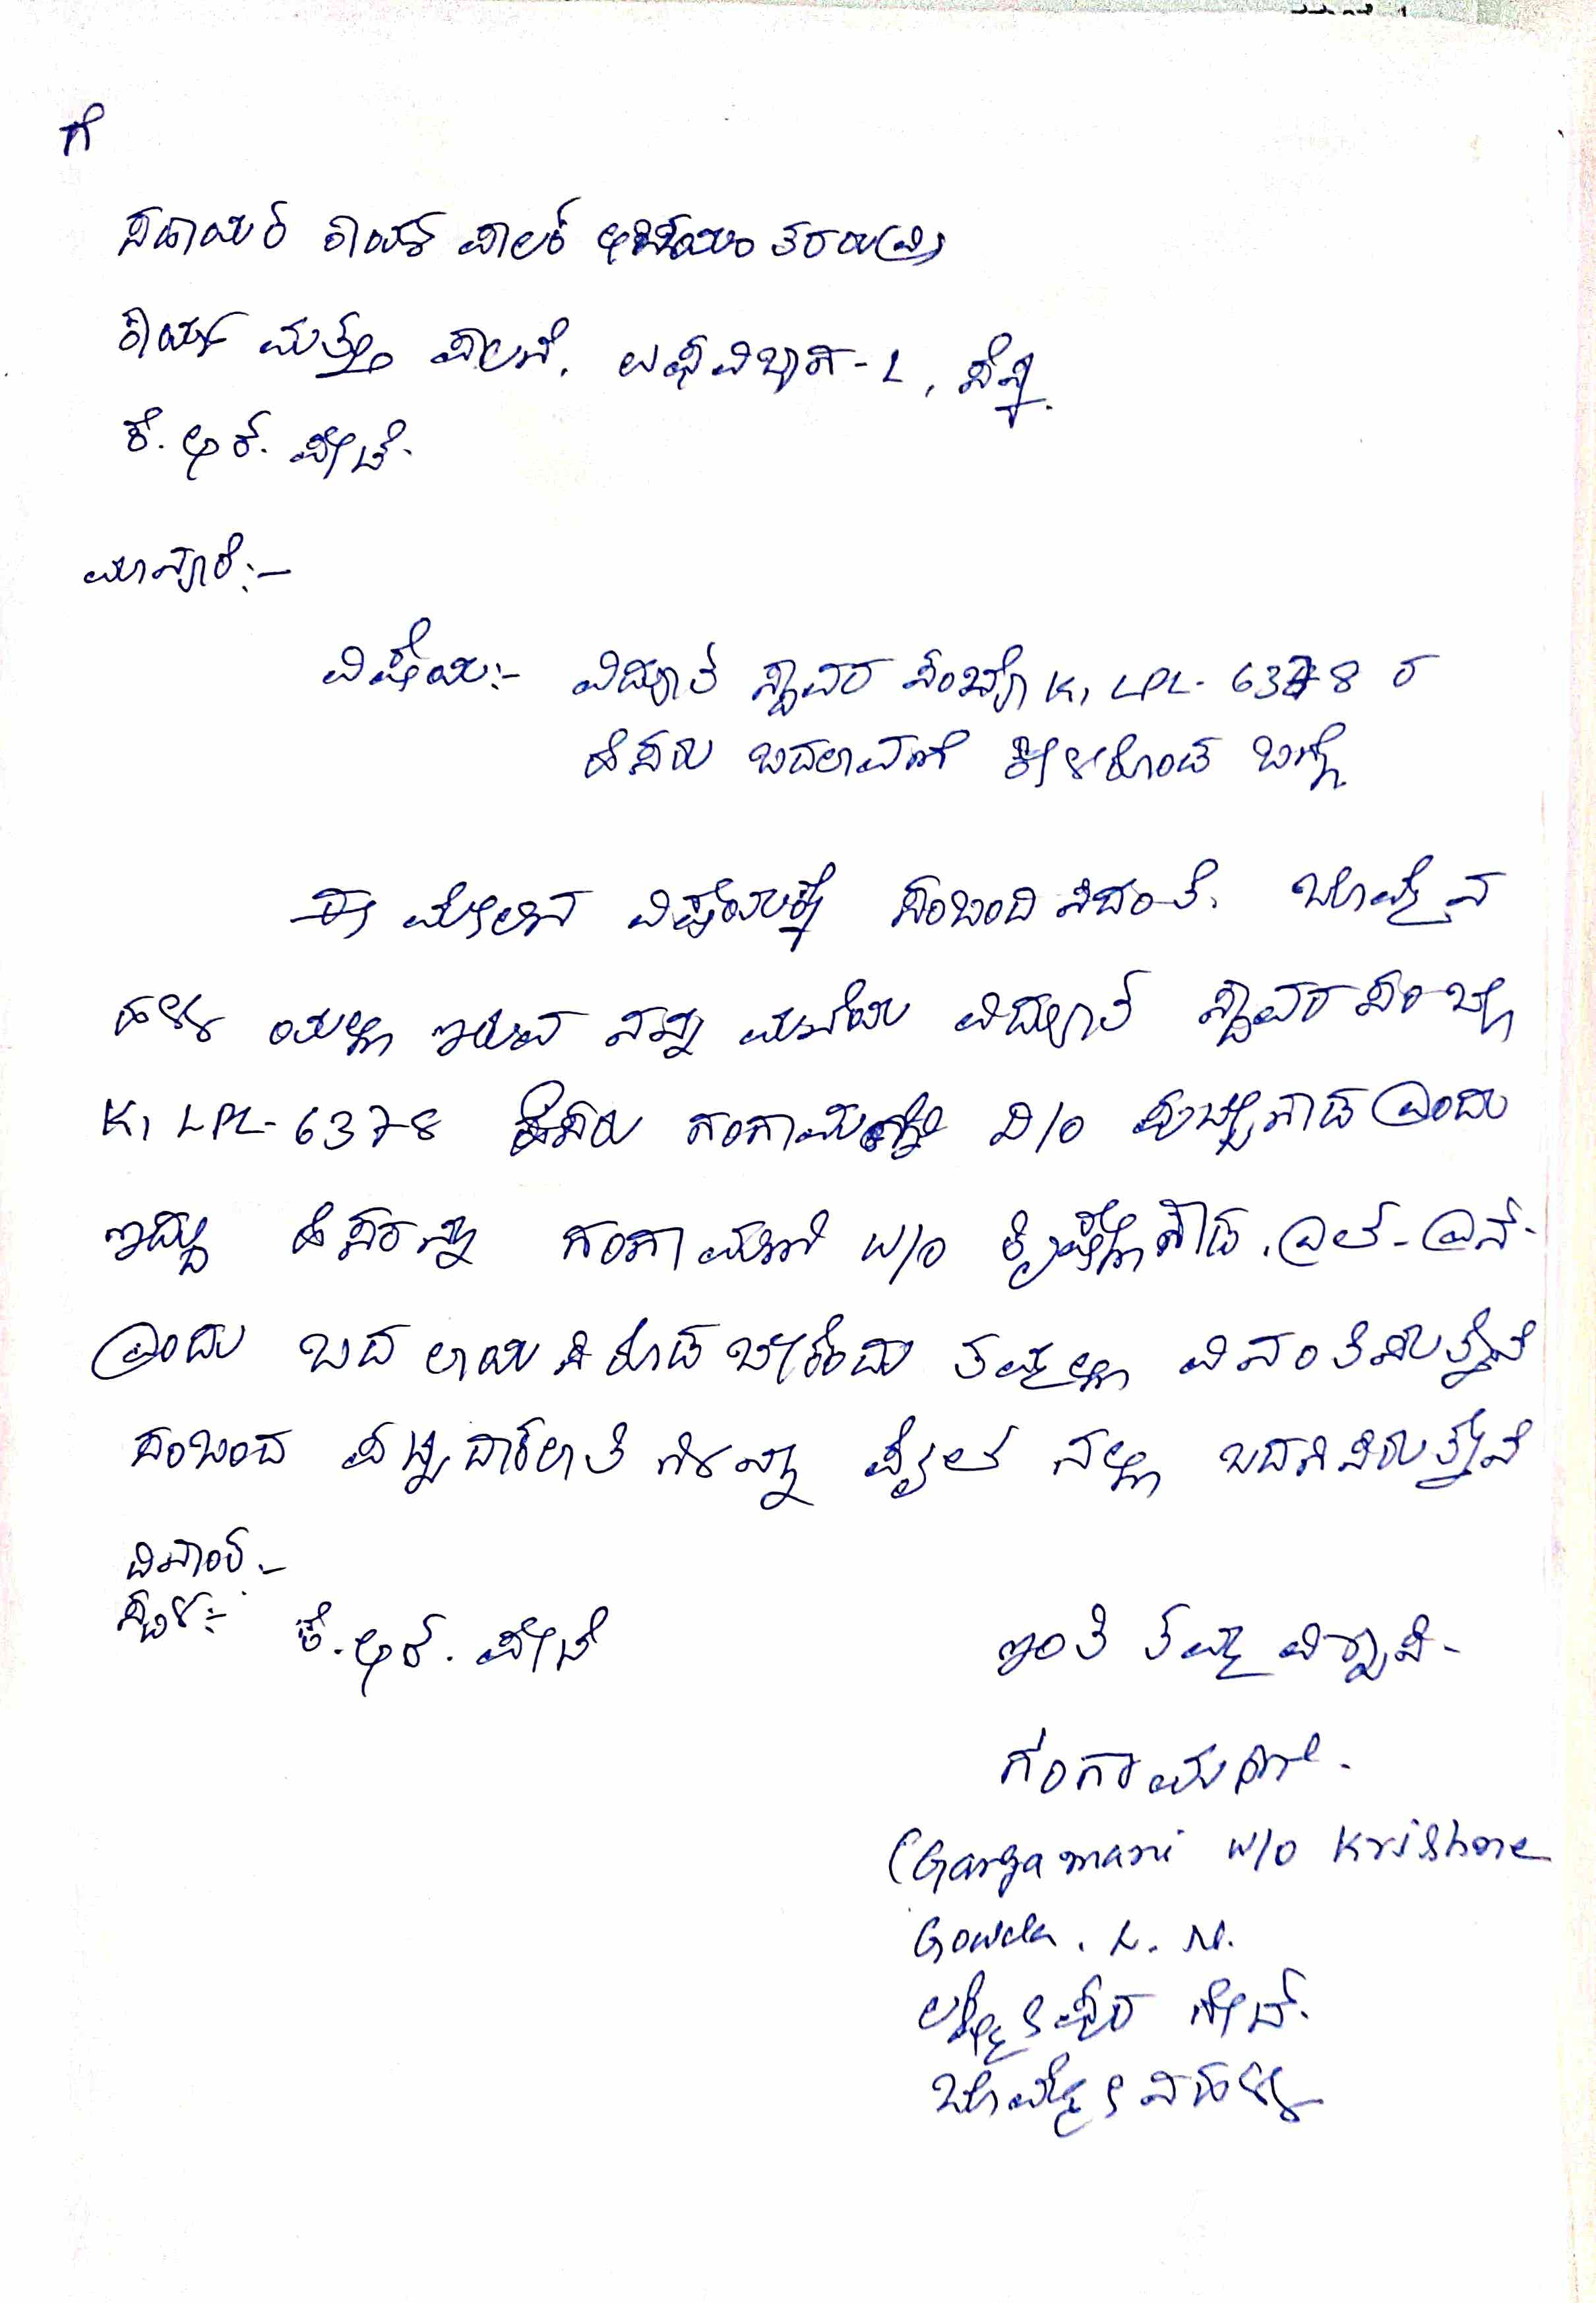 ಗೆ
ಸಹಾಯಕ ಕಾರ್ಯ ಪಾಲಕ ಅಭಿಯಂತರರು(ವಿ)
ಕಾರ್ಯ ಮತ್ತು ಪಾಲನೆ, ಉಪವಿಭಾಗ-1, ಸೆಸ್ಕ್.
ಕೆ. ಆರ್. ಪೇಟೆ.
ಮಾನ್ಯರೆ:-
ವಿಷಯ:- ವಿದ್ಯುತ್ ಸ್ಥಾವರ ಸಂಖ್ಯೆ K, LPL- 6378 ರ
ಹೆಸರು ಬದಲಾವಣೆ ಕೇಳಿಕೊಂಡ ಬಗ್ಗೆ
ಈ ಮೇಲಿನ ವಿಷಯಕ್ಕೆ ಸಂಬಂದಿಸಿದಂತೆ. ಬೊಮ್ಮೇನ
ಹಳ್ಳಿ ಯಲ್ಲಿ ಇರುವ ನನ್ನ ಮನೆಯ ವಿದ್ಯುತ್ ಸ್ಥಾವರ ಸಂಖ್ಯೆ
K, LPL- 6378 ಹೆಸರು ಗಂಗಾಮಣಿ D/o ಪುಟ್ಟೇಗೌಡ ಎಂದು
ಇದ್ದು ಹೆಸರನ್ನು ಗಂಗಾಮಣಿ W/o ಕೃಷ್ಣೇಗೌಡ. ಎಲ್- ಎನ್-
ಎಂದು ಬದಲಾಯಿಸಿಕೊಡಬೇಕೆಂದು ತಮ್ಮಲ್ಲಿ ವಿನಂತಿಸುತ್ತೇನೆ
ಸಂಬಂದ ಪಟ್ಟ ದಾಖಲಾತಿ ಗಳನ್ನು ಫೈಲ್ ನಲ್ಲಿ ಒದಗಿಸಿರುತ್ತೇನೆ
ದಿನಾಂಕ:-
ಸ್ಥಳ:- ಕೆ. ಆರ್. ಪೇಟೆ
ಇಂತಿ ತಮ್ಮ ವಿಶ್ವಾಸಿ-
ಗಂಗಾಮಣಿ.
(Gangamani W/o Krishne
Gowda. L. N.
ಲಕ್ಷ್ಮೀಪುರ ಗೇಟ್.
ಬೊಮ್ಮೇನಹಳ್ಳಿ